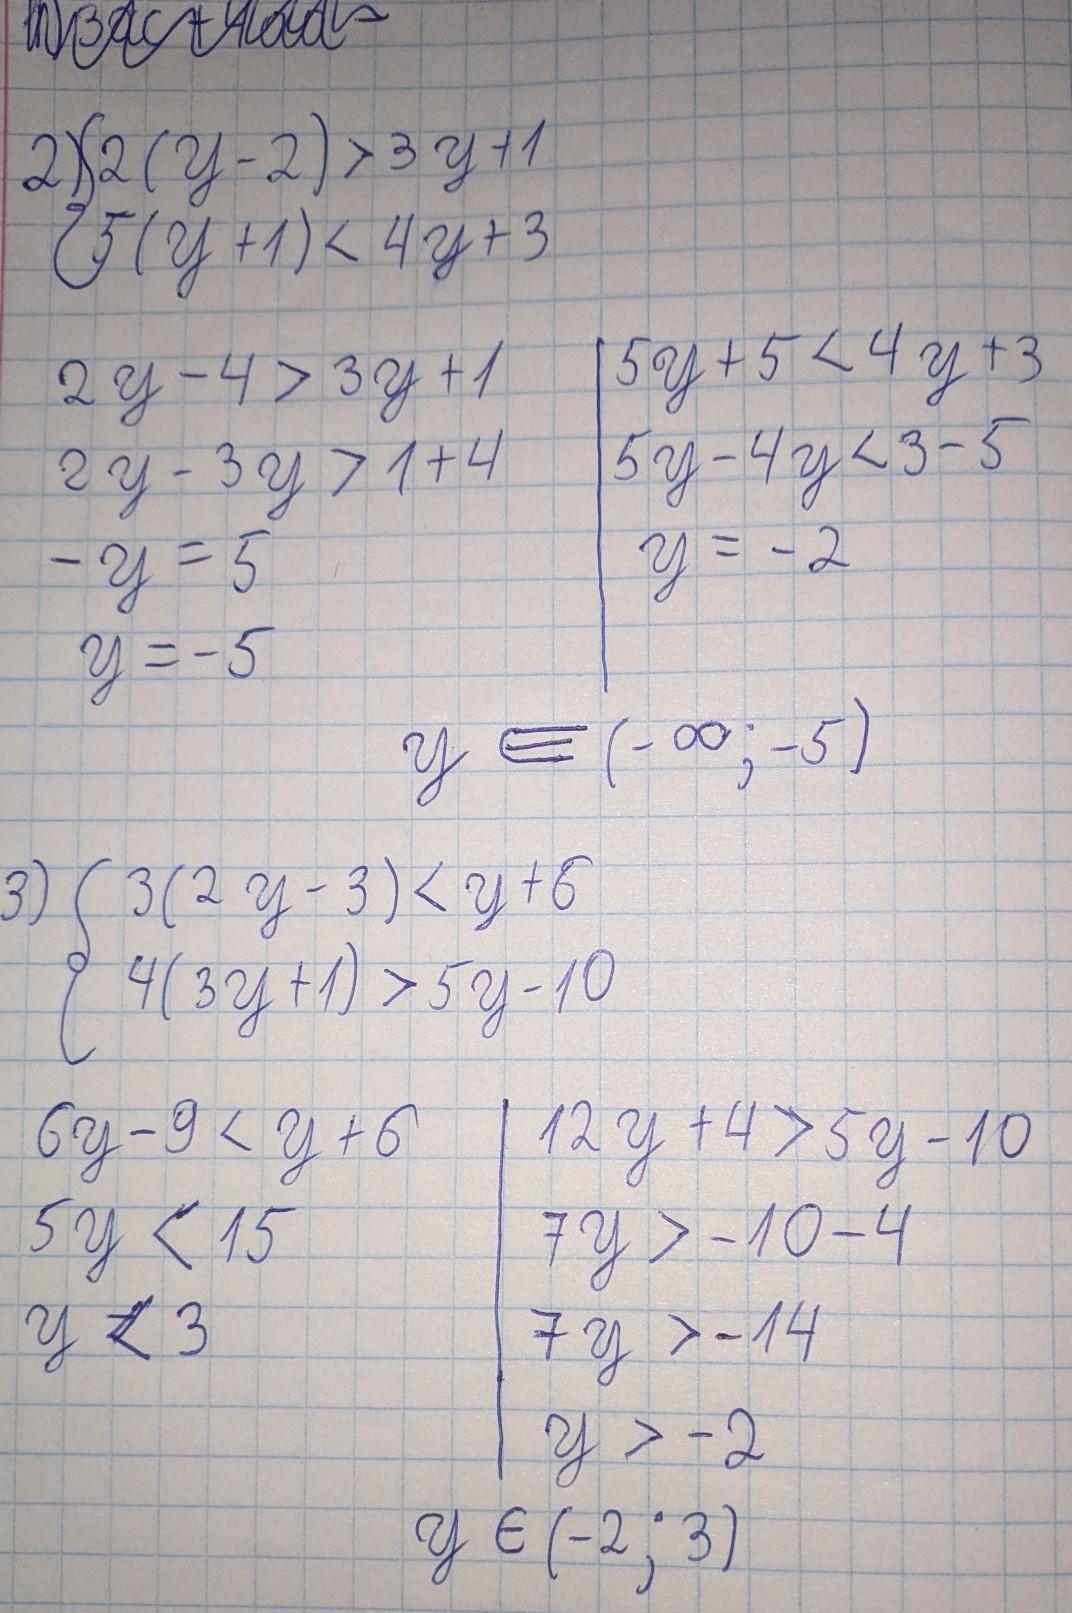 2) { 2(y-2) > 3y+1
5(y+1) < 4y+3
2y-4 > 3y+1
2y-3y > 1+4
-y = 5
y = -5
5y+5 < 4y+3
5y-4y < 3-5
y = -2
y ∈ (-∞; -5)
3) { 3(2y-3) < y+6
4(3y+1) > 5y-10
6y-9 < y+6
5y < 15
y < 3
12y+4 > 5y-10
7y > -10-4
7y > -14
y > -2
y ∈ (-2; 3)